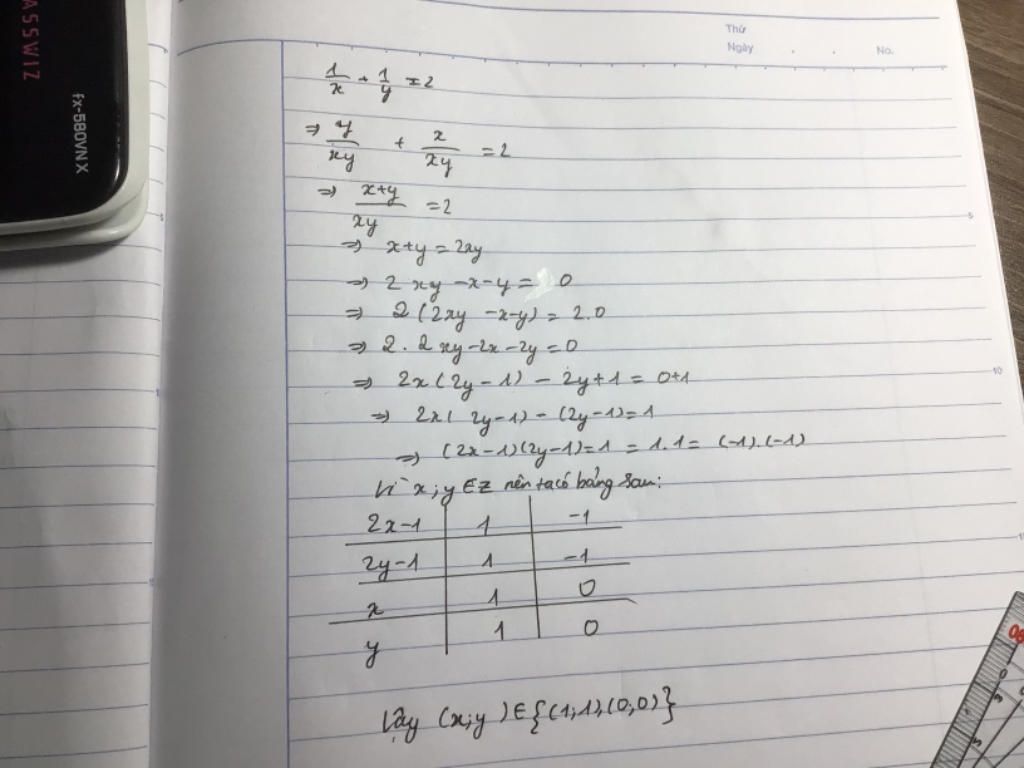 ASSWIZ
fx-580VNX
Thứ
Ngày . . No.
1/x + 1/y = 2
⇒ y/xy + x/xy = 2
⇒ x+y/xy = 2
⇒ x+y = 2xy
⇒ 2xy -x-y = 0
⇒ 2(2xy -x-y) = 2.0
⇒ 2.2xy-2x-2y=0
⇒ 2x(2y-1) - 2y+1 = 0+1
⇒ 2x(2y-1) - (2y-1)=1
⇒ (2x-1)(2y-1)=1 = 1.1= (-1).(-1)
Vì x;y ∈ Z nên ta có bảng sau:
2x-1 1 -1
2y-1 1 -1
x 1 0
y 1 0
Vậy (x;y) ∈ {(1,1),(0,0)}
5
10